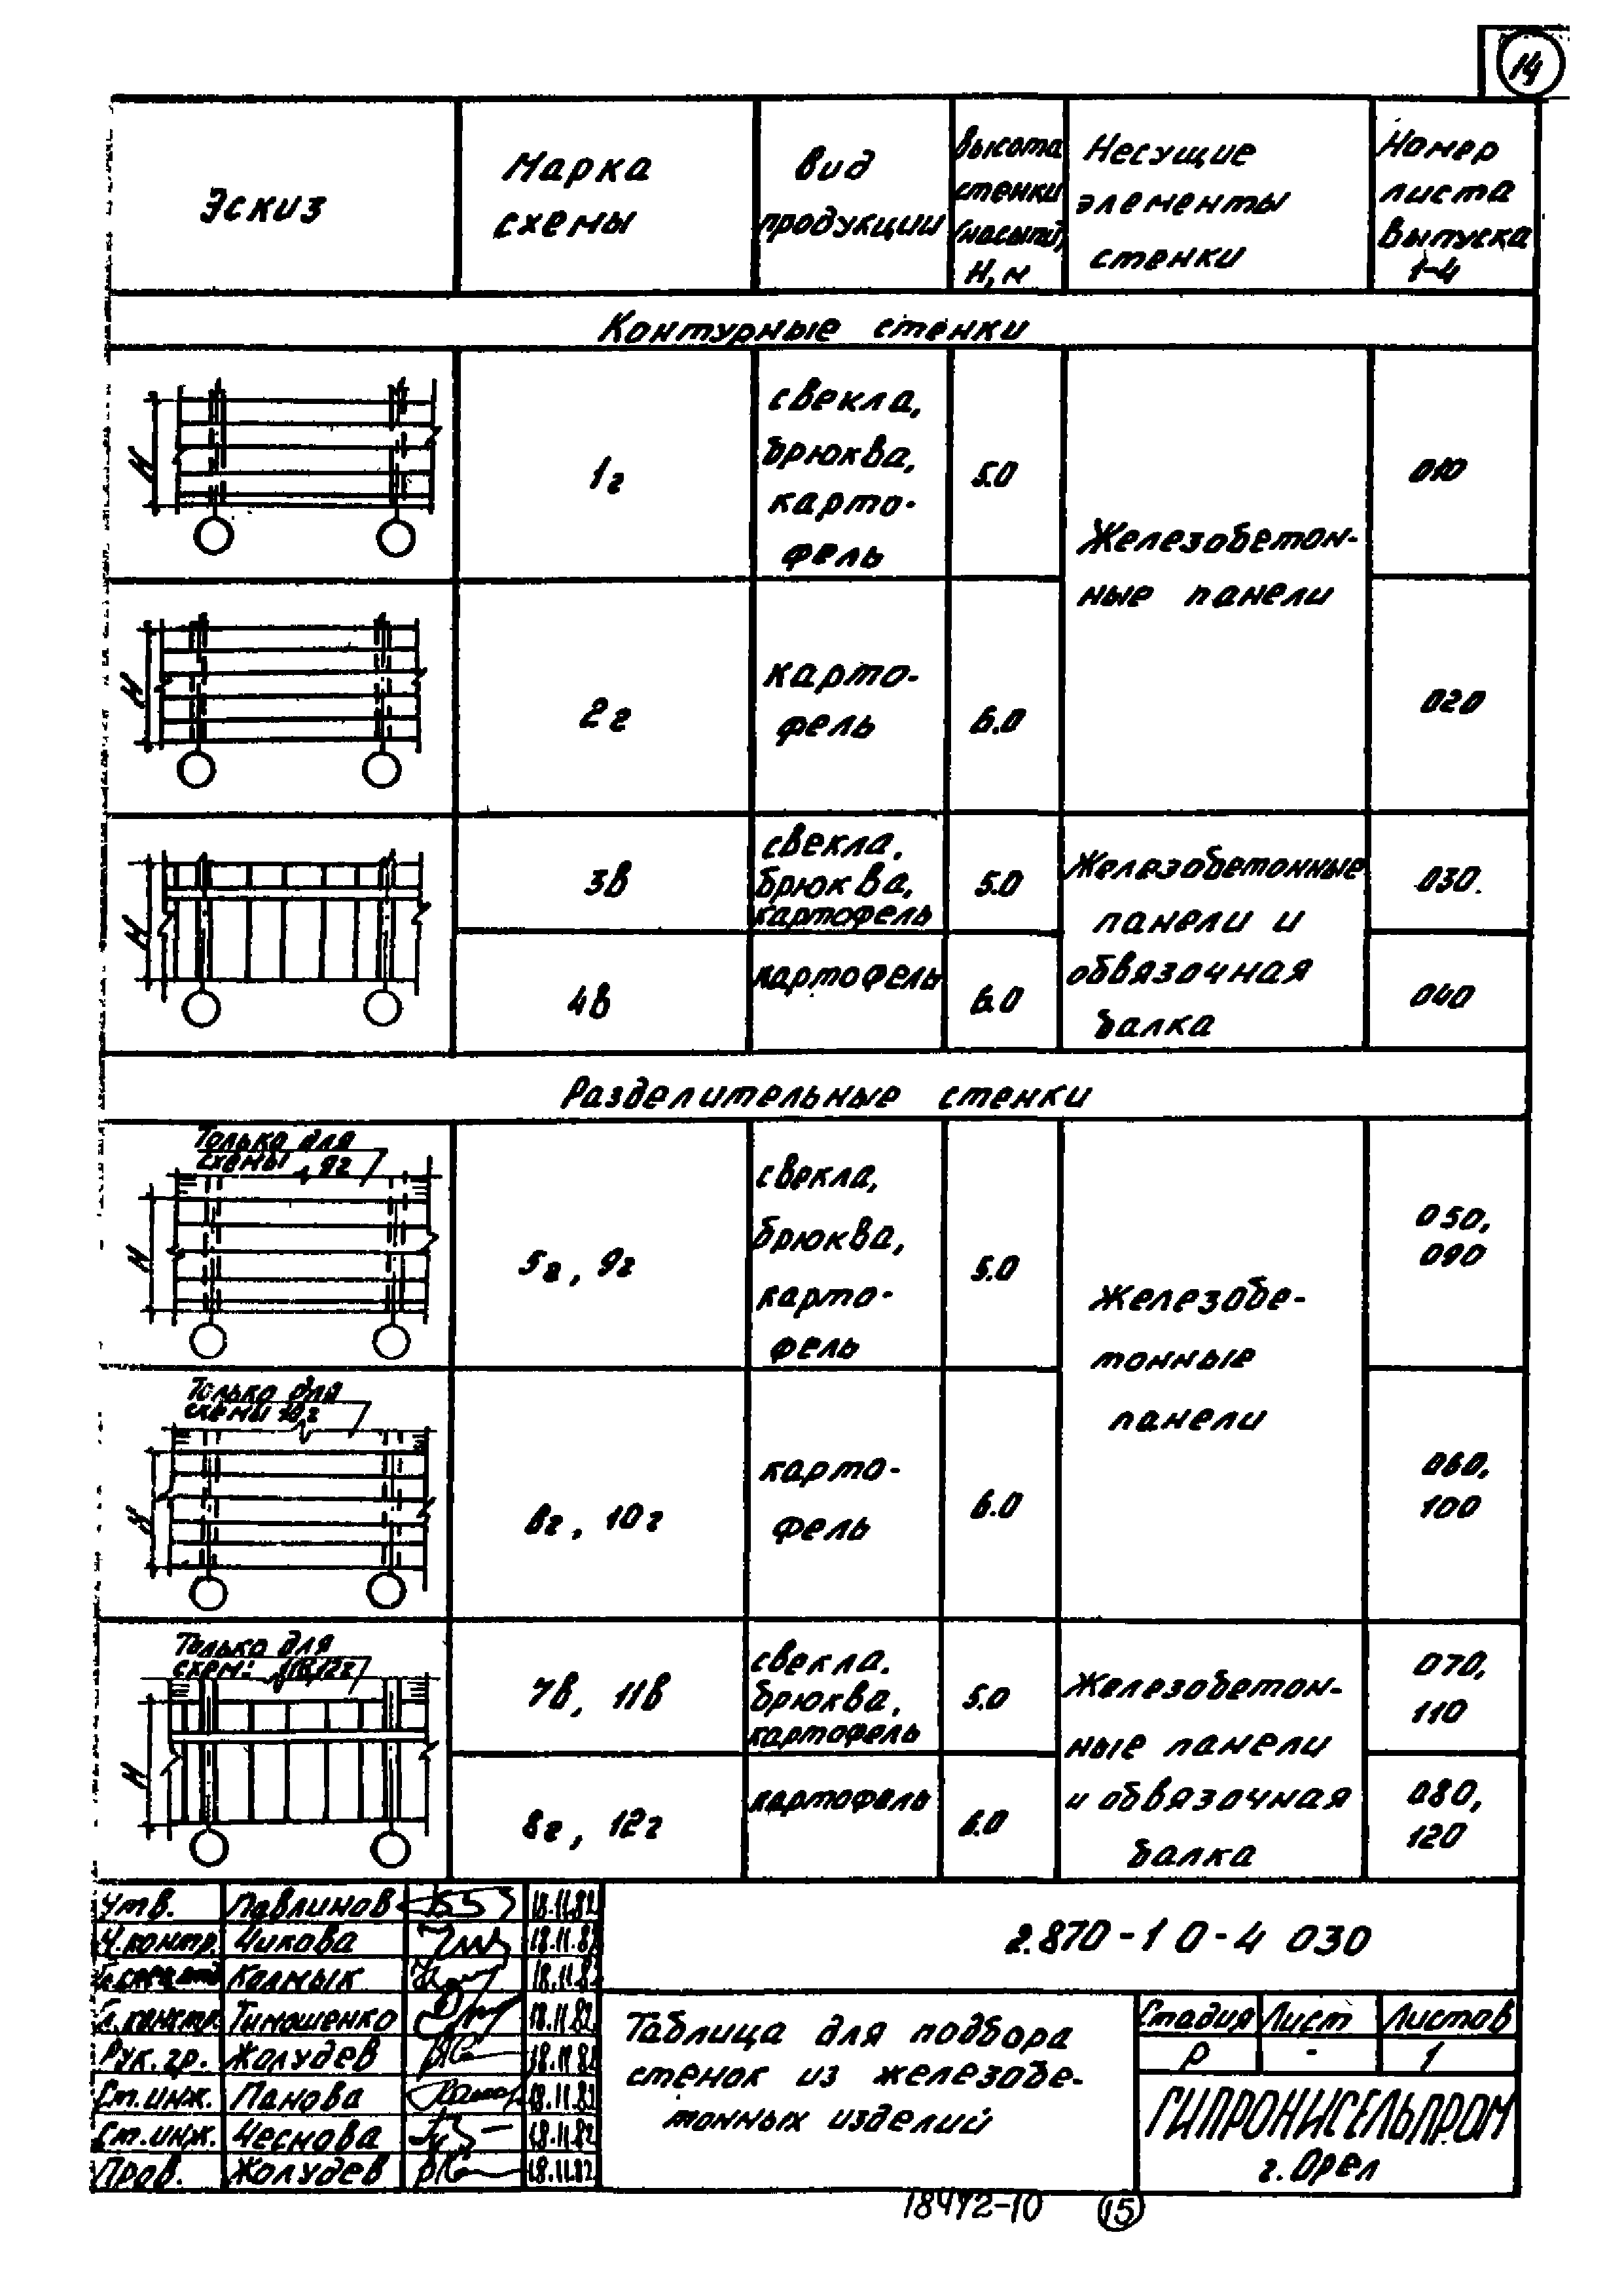 14
Эскиз
Марка
схемы
Вид
продукции
Высота
стенки
(насыпи),
Н, м
Несущие
элементы
стенки
Номер
листа
выпуска
1-4
Контурные стенки
Н
1г
свекла,
брюква,
карто-
фель
5.0
Железобетон-
ные панели
010
Н
2г
карто-
фель
6.0
020
Н
3в
свекла.
брюква,
картофель
5.0
Железобетонные
панели и
обвязочная
балка
030.
4в
картофель
6.0
040
Разделительные стенки
Только для
схемы 9г
Н
5г, 9г
свекла,
брюква,
карто-
фель
5.0
Железобе-
тонные
панели
050,
090
Только для
схемы 10г
Н
6г, 10г
карто-
фель
6.0
060,
100
Только для
схем: 11в, 12г
Н
7в, 11в
свекла.
брюква,
картофель
5.0
Железобетон-
ные панели
и обвязочная
балка
070,
110
8г, 12г
картофель
6.0
080,
120
Утв. Павлинов 18.11.82
Н.контр. Чикова 18.11.82
Калмык 18.11.82
Гл.констр. Тимошенко 18.11.82
Рук.гр. Жолудев 18.11.82
Ст.инж. Панова 18.11.82
Ст.инж. Чеснова 18.11.82
Пров. Жолудев 18.11.82
2.870-1 0-4 030
Таблица для подбора
стенок из железобе-
тонных изделий
Стадия Лист Листов
Р - 1
ГИПРОНИСЕЛЬПРОМ
г. Орел
18472-10 15